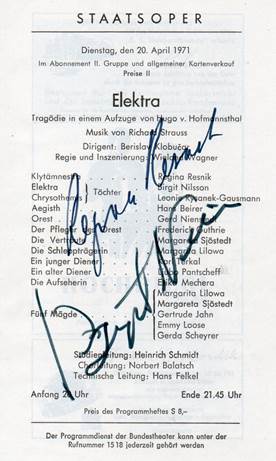 STAATSOPER
Dienstag, den 20. April 1971
Im Abonnement II. Gruppe und allgemeiner Kartenverkauf
Preise II
Elektra
Tragödie in einem Aufzuge von Hugo v. Hofmannsthal
Musik von Richard Strauss
Dirigent: Berislav Klobučar
Regie und Inszenierung: Wieland Wagner
Klytämnestra Regina Resnik
Elektra Birgit Nilsson
Chrysothemis Töchter Leonie Rysanek-Gausmann
Aegisth Hans Beirer
Orest Gerd Nienstedt
Der Pfleger des Orest Frederick Guthrie
Die Vertraute Margareta Sjöstedt
Die Schleppträgerin Margarita Lilowa
Ein junger Diener Terkal
Ein alter Diener Pantscheff
Die Aufseherin Mechera
Fünf Mägde
Margarita Lilowa
Margareta Sjöstedt
Gertrude Jahn
Emmy Loose
Gerda Scheyrer
Regina Resnik
Birgit Nilsson
Studienleitung: Heinrich Schmidt
Chorleitung: Norbert Balatsch
Technische Leitung: Hans Felkel
Anfang 20 Uhr Ende 21.45 Uhr
Preis des Programmheftes S 8,—
Der Programmdienst der Bundestheater kann unter der
Rufnummer 1518 jederzeit gehört werden